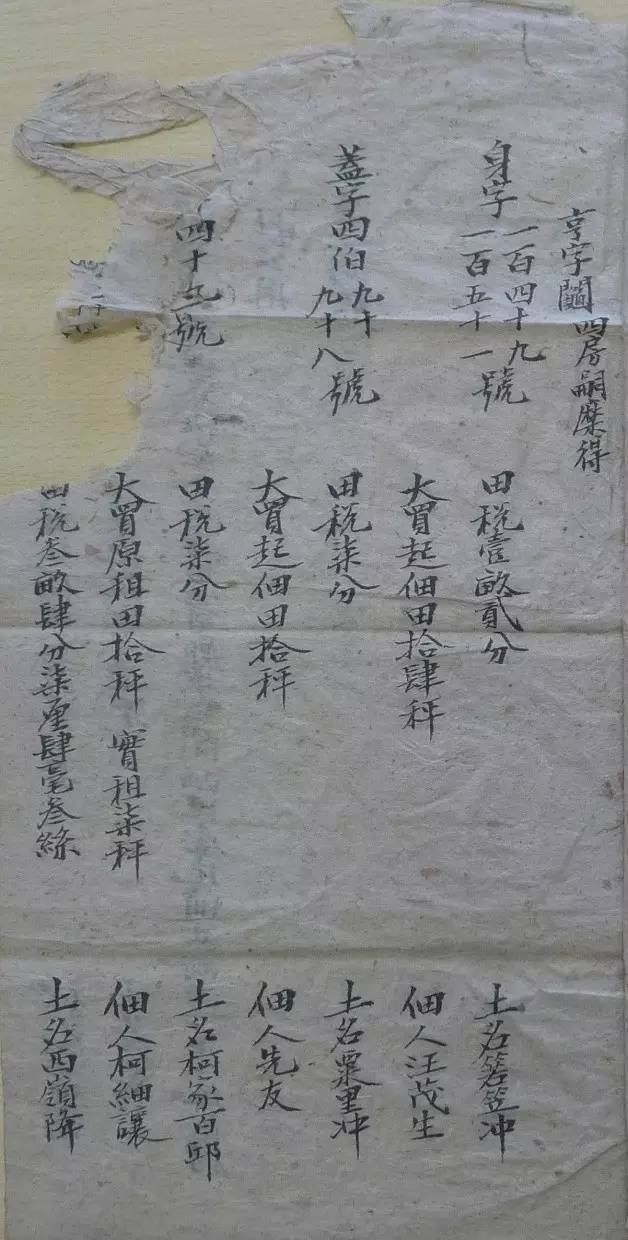 亨字鬮四房嗣糜得
身字一百四十九
一百五十一號
田稅壹畝貳分
土名箬笠冲
大買起佃田拾肆秤
佃人汪茂生
蓋字四伯九十
九十八號
田稅柒分
土名粟里冲
大買起佃田拾秤
佃人先友
四十三號
田稅柒分
土名柯家百邱
大買原租田拾秤 實租柒秤
佃人柯細讓
田稅叁畝肆分柒厘肆毫叁絲
土名西嶺降